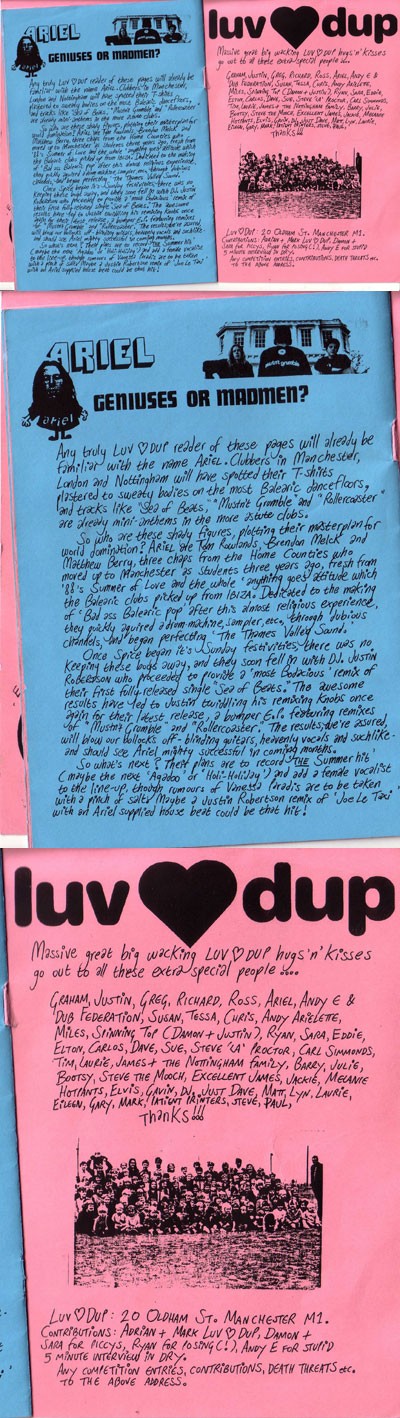 ARIEL
GENIUSES OR MADMEN?
ariel
luv dup
Massive great big wacking LUV ♡ DUP hugs 'n' kisses
go out to all these extra special people ....
THANKS!!!
LUV ♡ DUP: 20 OLDHAM ST. MANCHESTER M1.
ARIEL
GENIUSES OR MADMEN?
ariel
Any truly LUV ♡ DUP reader of these pages will already be
familiar with the name ARIEL. Clubbers in Manchester,
London and Nottingham will have spotted their T-shirts
plastered to sweaty bodies on the most Balearic dancefloors,
and tracks like "Sea of Beats," "Mustn't Grumble" and "Rollercoaster"
are already mini-anthems in the more astute clubs.
So who are these shady figures, plotting their masterplan for
world domination? Ariel are Tom Rowlands, Brendan Melck and
Matthew Berry, three chaps from the Home Counties who
moved up to Manchester as students three years ago, fresh from
'88's Summer of Love and the whole 'anything goes' attitude which
the Balearic clubs picked up from IBIZA. Dedicated to the making
of 'Bad ass Balearic pop' after this almost religious experience,
they quickly aquired a drum-machine, sampler, etc, through dubious
channels, and began perfecting 'The Thames Valley Sound.'
Once Spice began it's Sunday festivities, there was no
keeping these boys away, and they soon fell in with D.J. JUSTIN
ROBERTSON who proceeded to provide a 'most bodacious' remix of
their first fully-released single 'Sea of Beats.' The awesome
results have led to Justin twiddling his remixing knobs once
again for their latest release, a bumper E.P. featuring remixes
of "Mustn't Grumble" and "Rollercoaster". The results, we're assured,
will blow our bollocks off - blinding guitars, heavenly vocals and suchlike -
and should see Ariel mighty successful in coming months.
So what's next? Their plans are to record THE Summer hit
(maybe the next 'Agadoo' or 'Holi-Holiday') and add a female vocalist
to the line-up, though rumours of Vanessa Paradis are to be taken
with a pinch of salt. Maybe a Justin Robertson remix of 'Joe Le Taxi'
with an Ariel supplied house beat could be that hit!
luv dup
Massive great big wacking LUV ♡ DUP hugs 'n' kisses
go out to all these extra special people ....
GRAHAM, JUSTIN, GREG, RICHARD, ROSS, ARIEL, ANDY E &
DUB FEDERATION, SUSAN, TESSA, CHRIS, ANDY ARIELETTE,
MILES, SPINNING TOP (DAMON + JUSTIN), RYAN, SARA, EDDIE,
ELTON, CARLOS, DAVE, SUE, STEVE 'LA' PROCTOR, CARL SIMMONDS,
TIM, LAURIE, JAMES + THE NOTTINGHAM FAMILY, BARRY, JULIE,
BOOTSY, STEVE THE MOOCH, EXCELLENT JAMES, JACKIE, MELANIE
HOTPANTS, ELVIS, GAVIN, DN, JUST DAVE, MATT, LYN, LAURIE,
EILEEN, GARY, MARK, PATIENT PRINTERS, STEVE, PAUL,
THANKS!!!
LUV ♡ DUP: 20 OLDHAM ST. MANCHESTER M1.
CONTRIBUTIONS: ADRIAN + MARK LUV ♡ DUP, DAMON +
SARA FOR PICCYS, RYAN FOR POSING (!), ANDY E FOR STUPID
5 MINUTE INTERVIEW IN DRY.
ANY COMPETITION ENTRIES, CONTRIBUTIONS, DEATH THREATS etc.
TO THE ABOVE ADDRESS.